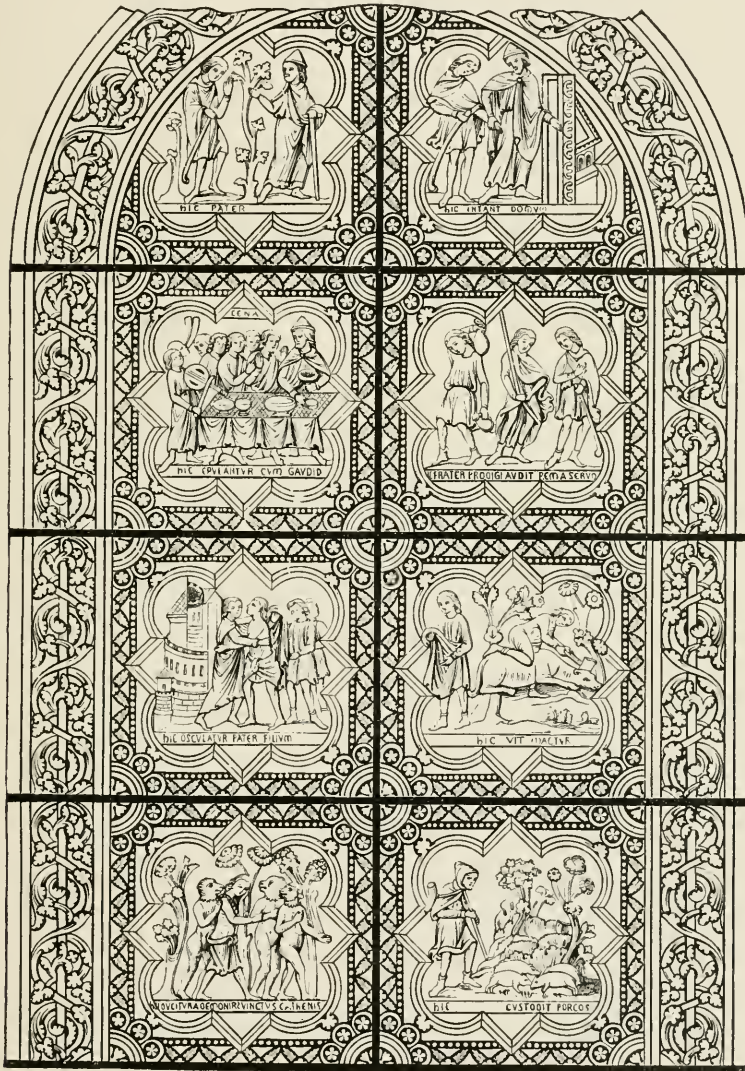 hIC PATER
hIC INTANT DOMVM
CENA
hIC EPVLANTVR CVM GAVDIO
FRATER PRODIGI AVDIT REM A SERVO
hIC OSCVLATVR PATER FILIVM
hIC VIT MACTVR
VINCTUS
hIC CVSTODIT PORCOS